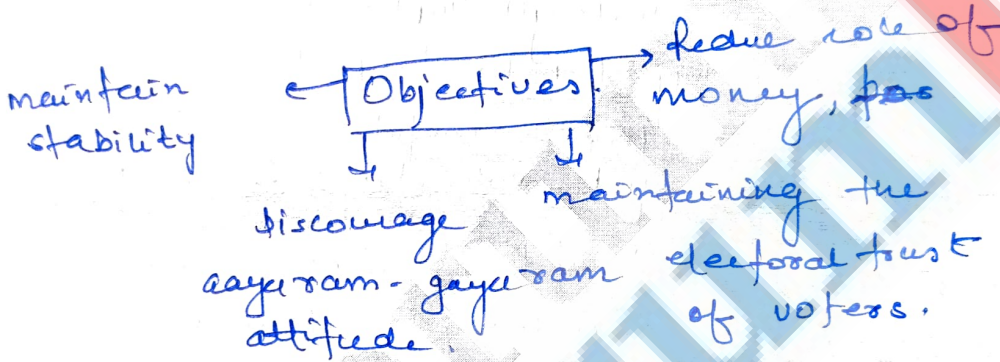 maintain
stability
Objectives
Reduce role of
money,
Discourage
aayaram - gayaram
attitude.
maintaining the
electoral trust
of voters.